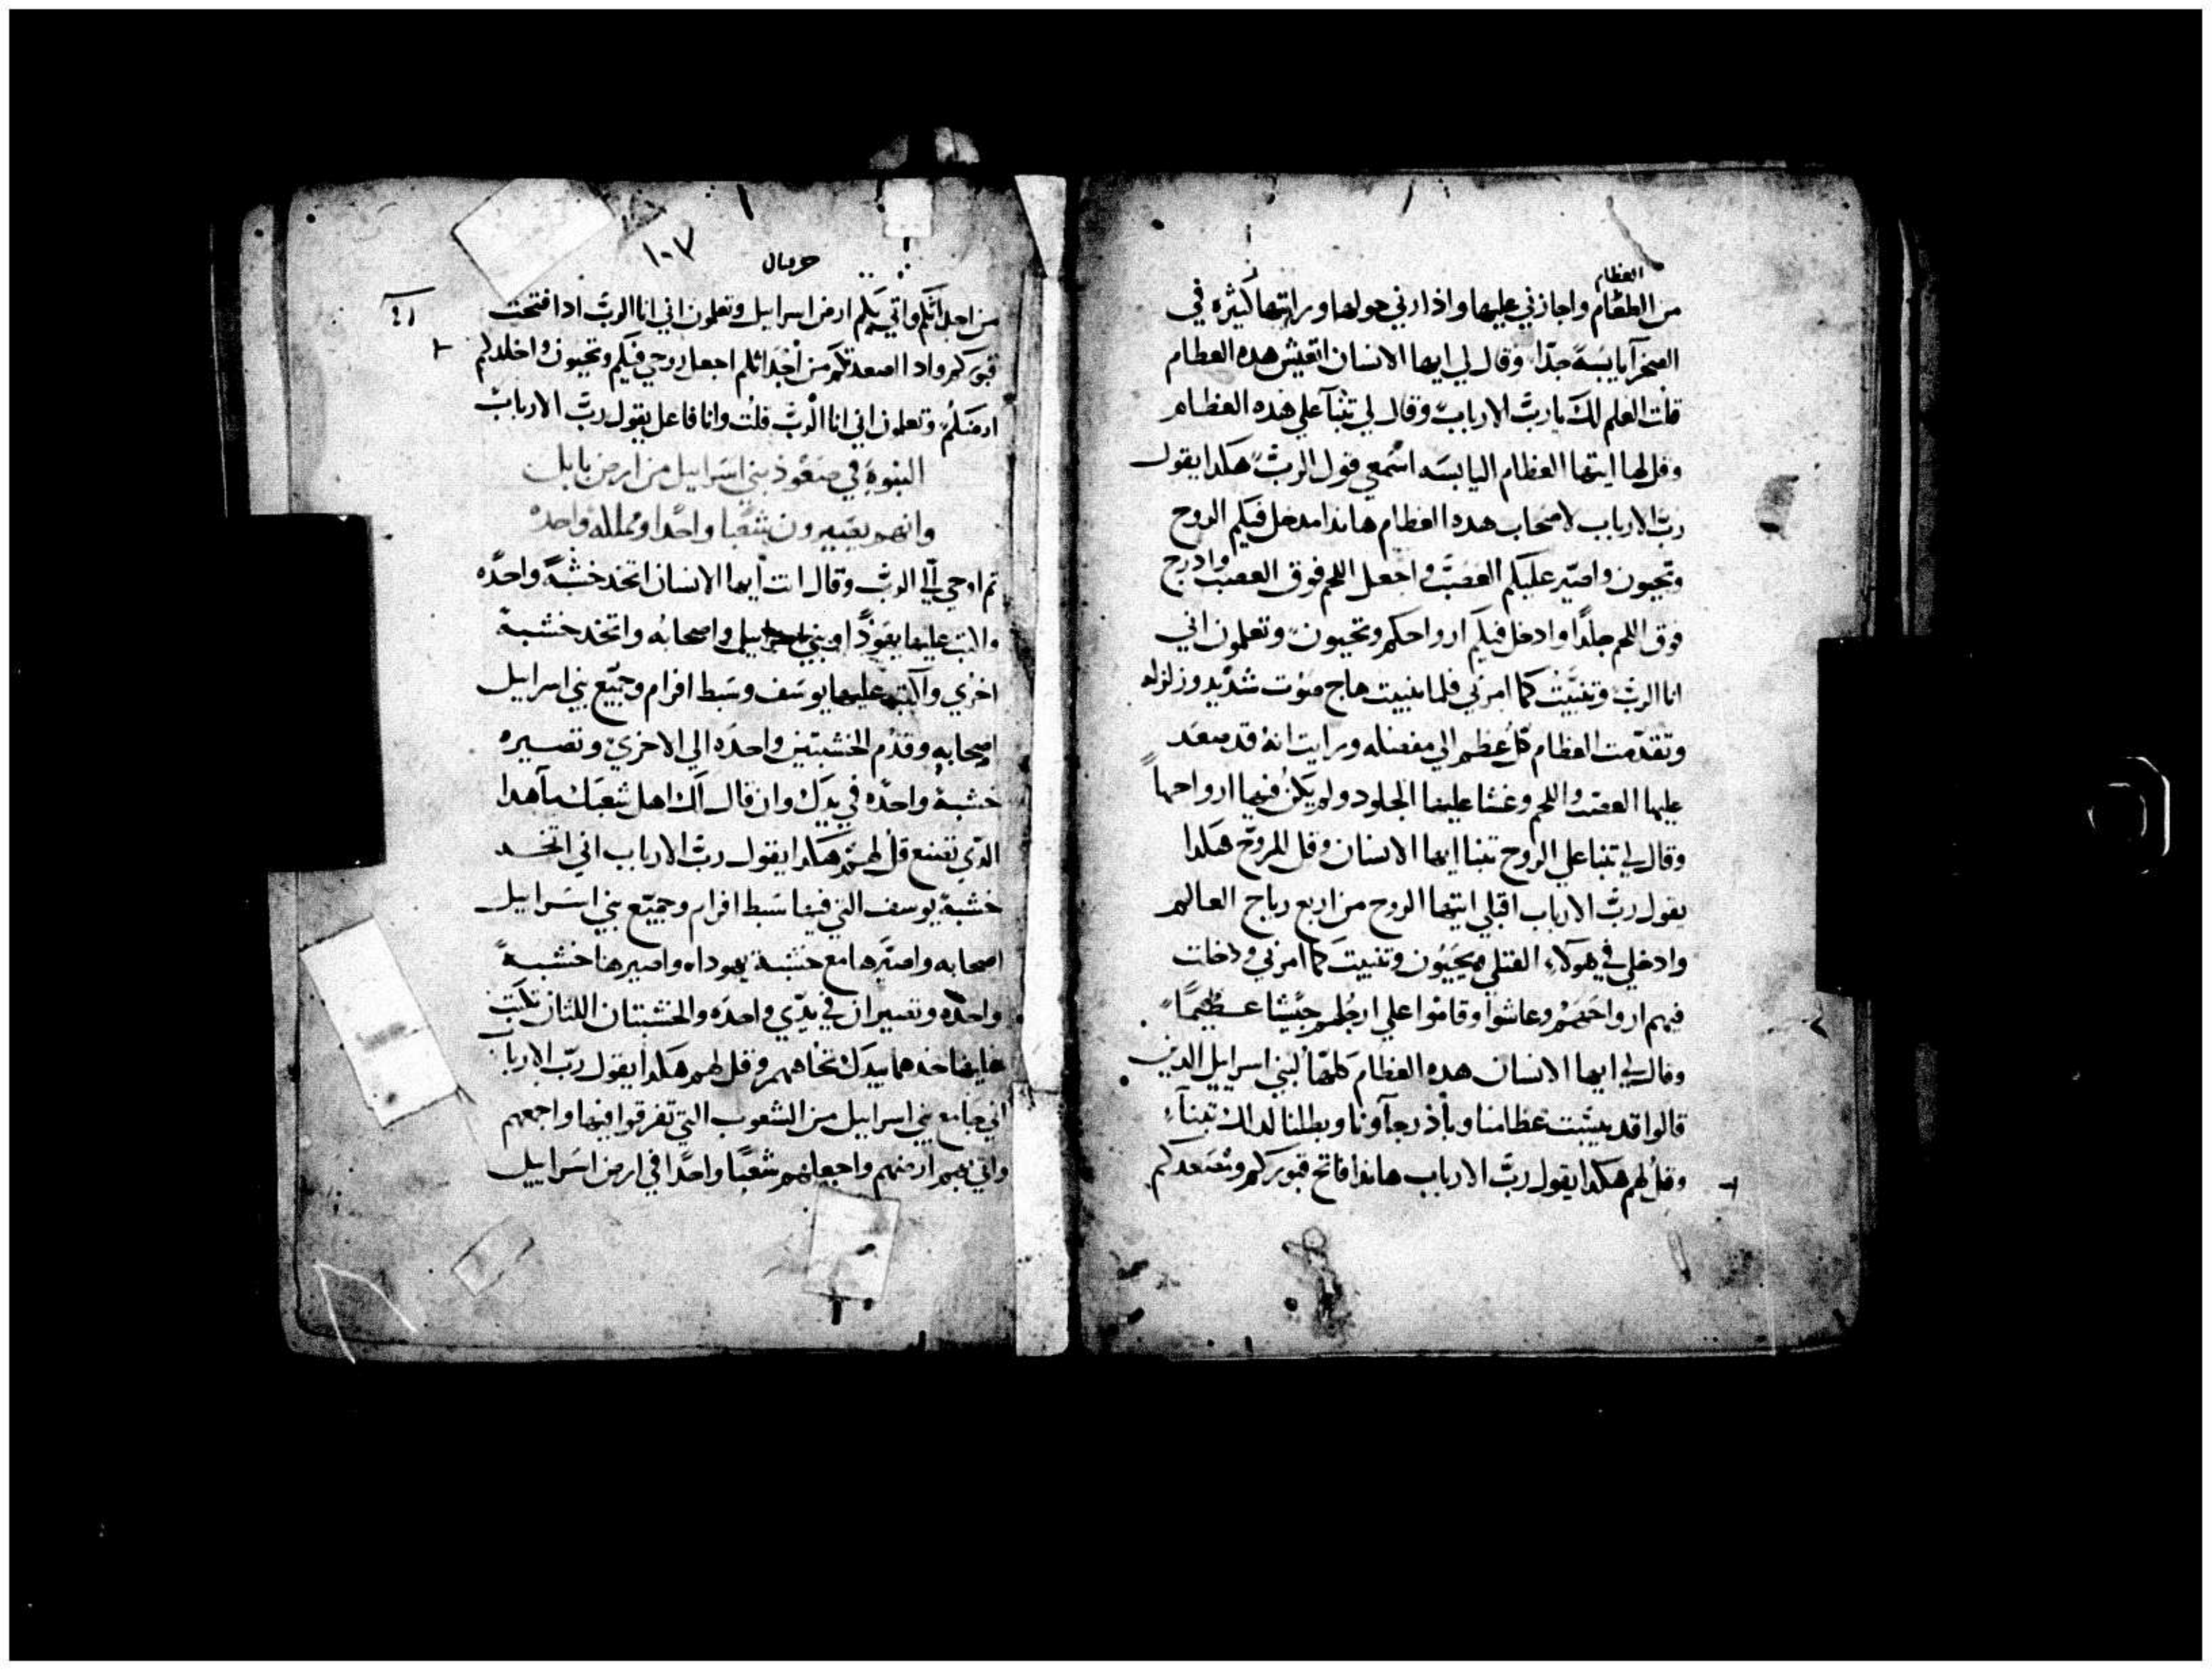 العظام
من الطعام واجازني عليها واذارني حولها ورايتها كثيره في
الصحرآ يابسةً جدًا وقال لي ايها الانسان اتعيش هده العظام
قلت العلم لك يا ربّ الارباب وقال لي تنبآ علي هده العظام
وقل لها ايتها العظام اليابسه اسمعي قول الربّ هكدا يقول
ربّ الارباب لاصحاب هده العظام هاندا مدخل فيكم الروح
وتحيون واصيّر عليكم العصب واجعل اللحم فوق العصب وادرج
فوق اللحم جلدًا وادخل فيكم ارواحكم وتحيون وتعلمون اني
انا الربّ وتنبيّت كما امرني فلما تنبيت هاج صوت شديد وزلزله
وتقدّمت العظام كل عظم الي مفصله ورايت انه قد صعد
عليها العصب واللحم وغشا عليها الجلود ولم يكن فيها ارواحها
وقال لي تنبا علي الروح تنبا ايها الانسان وقل للروح هكدا
يقول ربّ الارباب اقبلي ايتها الروح من اربع رياح العالم
وادخلي في هولآء القتلي ويحيون وتنبيت كما امرني ودخلت
فيهم ارواحهم وعاشوا وقاموا علي ارجلهم جيشا عظيمًا
وقال لي ايها الانسان هده العظام كلها لبني اسراييل الدين
قالوا قد يبست عظامنا وباد رجآونا وبطلنا لدلك تنبآء
وقل لهم هكدا يقول ربّ الارباب هاندا فاتح قبوركم ونصعدكم
١٠٧
حزقيال
من اجداثكم واتي بكم ارض اسراييل وتعلمون اني انا الربّ ادا فتحت
قبوركم واد اصعدتكم من اجداثكم اجعل روحي فيكم وتحيون واخلدكم
ارضكم وتعلمون اني انا الربّ قلت وانا فاعل يقول ربّ الارباب
النبوة في صعود بني اسراييل من ارض بابل
وانهم يصيرون شعبا واحدا ومملكه واحده
تم اوحي الي الربّ وقال انت ايها الانسان اتخد خشبةً واحده
واكتب عليها يهودا وبني اسراييل واصحابه واتخد خشبة
اخري واكتب عليها يوسف وسبط افرام وجميع بني اسراييل
اصحابه وقدم الخشبتين واحده الي الاخري وتصيره
خشبة واحده في يدك وان قال لك اهل شعبك ما هدا
الدي تصنع قل لهم هكدا يقول ربّ الارباب اني اتخد
خشبة يوسف التي فيها سبط افرام وجميع بني اسراييل
اصحابه واصيّرها مع خشبة يهودا واصيرها خشبةً
واحده وتصيران في يدي واحده والخشبتان اللتان تكتب
عليها خدهما بيدك تجاههم وقل لهم هكدا يقول ربّ الاربا
اني جامع بني اسراييل من الشعوب التي تفرقوا فيها واجمعهم
واتي بهم ارضهم واجعلهم شعبًا واحدًا في ارض اسراييل